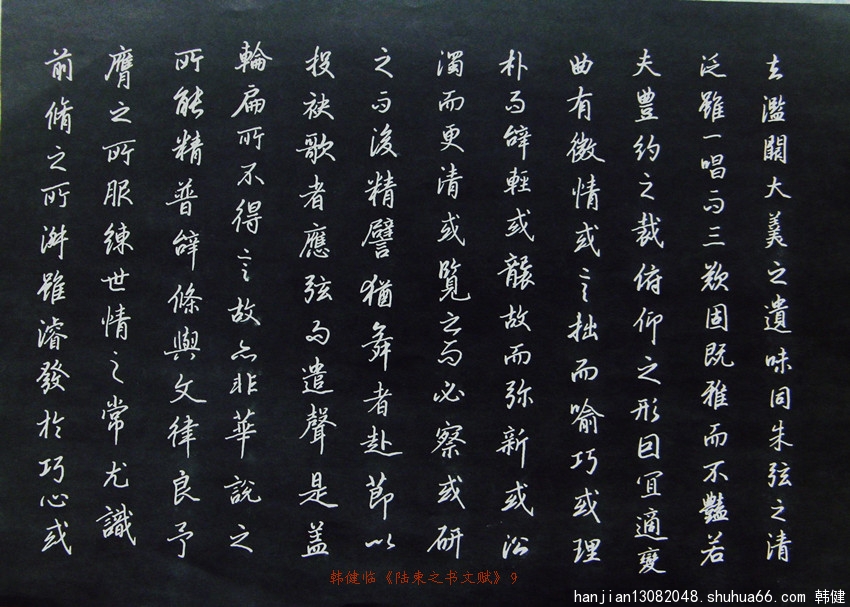 去濫闕大羹之遺味同朱弦之清
泛雖一唱而三歎固既雅而不豔若
夫豐約之裁俯仰之形因宜適變
曲有微情或言拙而喻巧或理
朴而辭輕或襲故而弥新或沿
濁而更清或覽之而必察或研
之而後精譬猶舞者赴節以
投袂歌者應弦而遣聲是盖
輪扁所不得言故亦非華說之
所能精普辭條與文律良予
膺之所服練世情之常尤識
前脩之所淑雖濬發於巧心或
韩健临《陆柬之书文赋》9
hanjian13082048.shuhua66.com 韩健